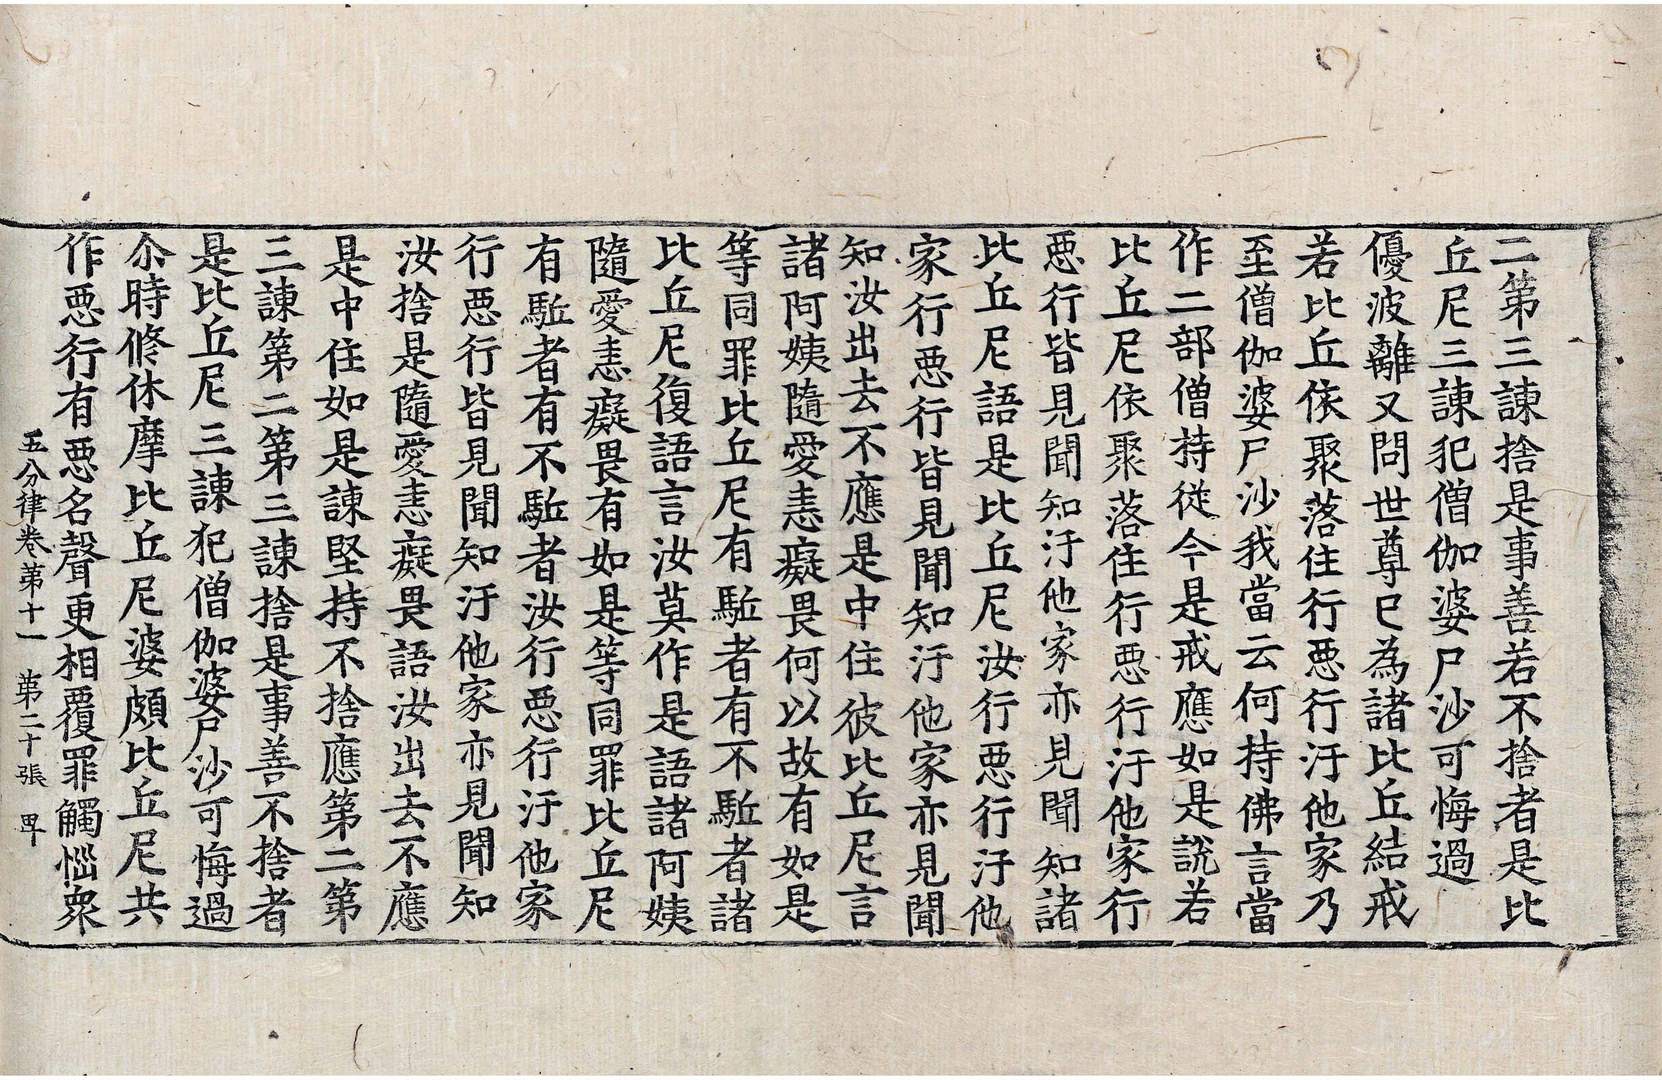 二第三諫捨是事善若不捨者是比
丘尼三諫犯僧伽婆尸沙可悔過
優波離又問世尊已為諸比丘結戒
若比丘依聚落住行惡行汙他家乃
至僧伽婆尸沙我當云何持佛言當
作二部僧持從今是戒應如是說若
比丘尼依聚落住行惡行汙他家行
惡行皆見聞知汙他家亦見聞知諸
比丘尼語是比丘尼汝行惡行汙他
家行惡行皆見聞知汙他家亦見聞
知汝出去不應是中住彼比丘尼言
諸阿姨隨愛恚癡畏何以故有如是
等同罪比丘尼有駈者有不駈者諸
比丘尼復語言汝莫作是語諸阿姨
隨愛恚癡畏有如是等同罪比丘尼
有駈者有不駈者汝行惡行汙他家
行惡行皆見聞知汙他家亦見聞知
汝捨是隨愛恚癡畏語汝出去不應
是中住如是諫堅持不捨應第二第
三諫第二第三諫捨是事善不捨者
是比丘尼三諫犯僧伽婆尸沙可悔過
尒時脩休摩比丘尼婆頗比丘尼共
作惡行有惡名聲更相覆罪觸惱衆
五分律卷第十一 第二十張 畀